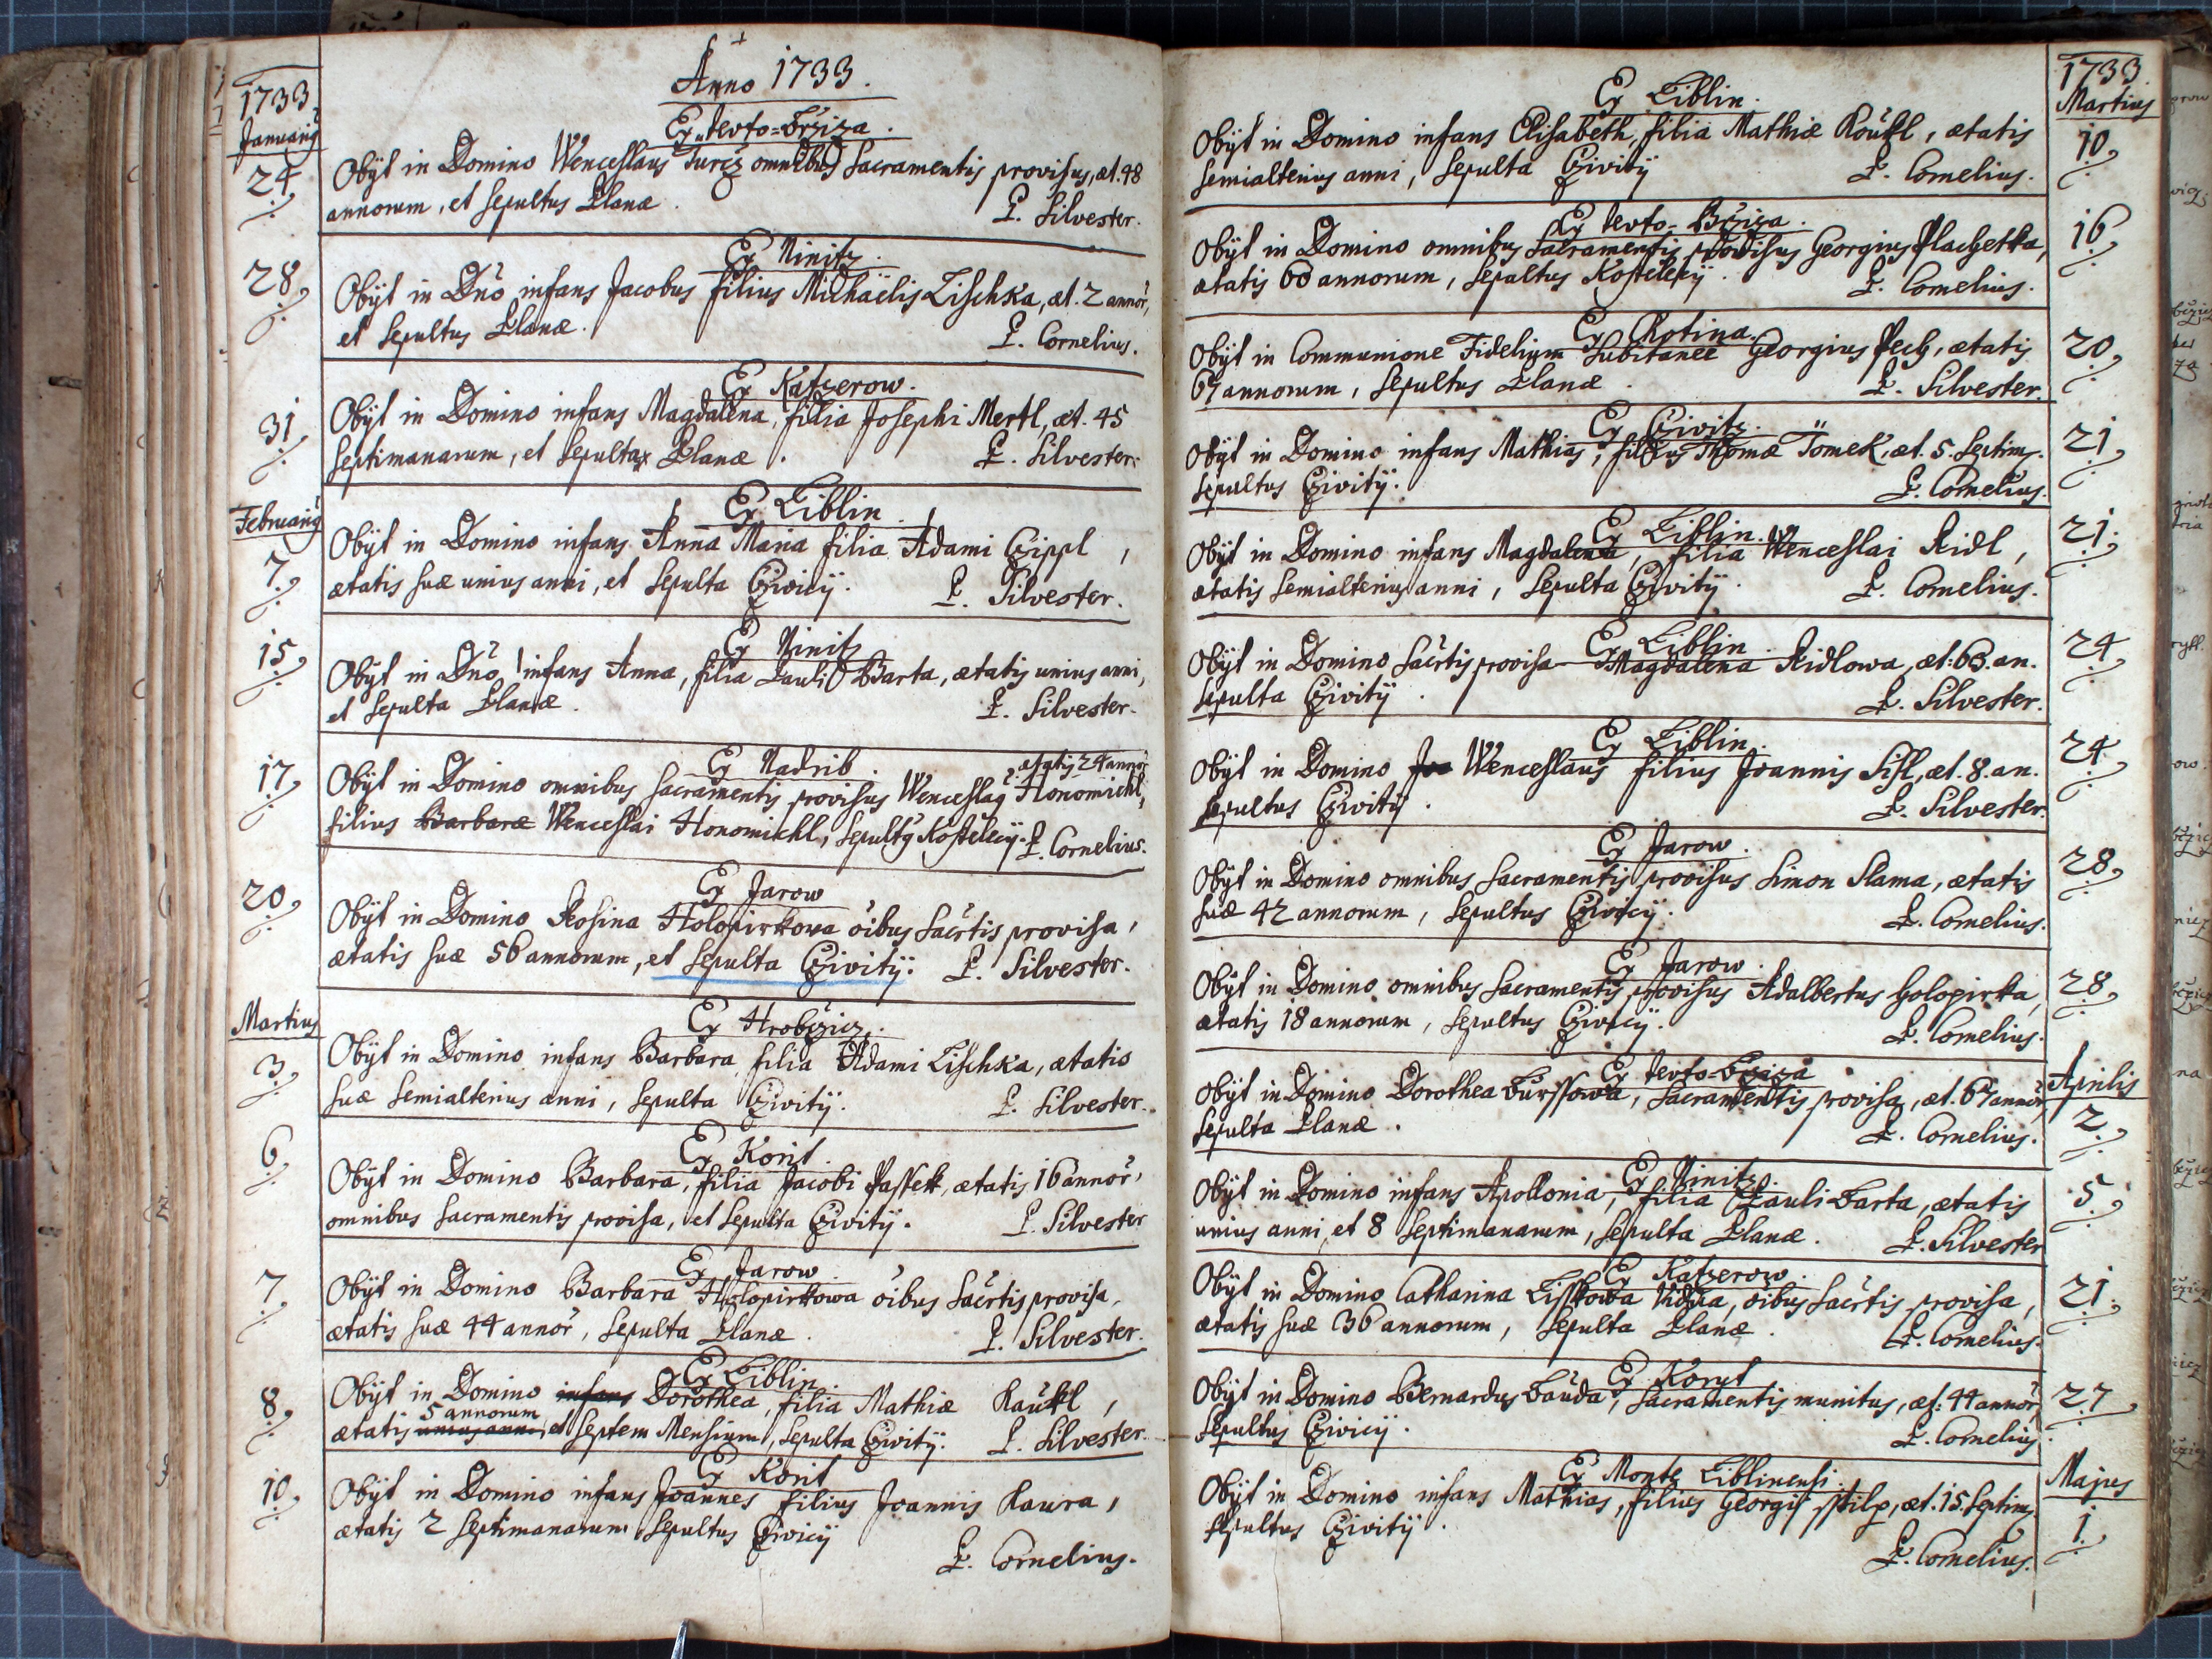 1733
Anno 1733.
Januarius
Ex Certo-Briza.
24.
Obÿt in Domino Wenceslaus Turez omnibus Sacramentis provisus, æt. 48
annorum, et sepultus Planæ.
P. Silvester.
Ex Ninitz.
28.
Obÿt in Dño infans Jacobus filius Michaëlis Lischka, æt. 2 annor,
et sepultus Planæ.
P. Cornelius.
Ex Katzerow.
31
Obÿt in Domino infans Magdalena, filia Josephi Mertl, æt. 45
septimanarum, et sepulta Planæ.
P. Silvester.
Februarius
Ex Liblin.
7.
Obÿt in Domino infans Anna Maria filia Adami Czippl,
ætatis suæ unius anni, et sepulta Cziwicÿ.
P. Silvester.
Ex Ninitz
15.
Obÿt in Dño infans Anna, filia Pauli Barta, ætatis unius anni,
et sepulta Planæ.
P. Silvester.
Ex Nadrib.
17.
ætatis 24 annor
Obÿt in Domino omnibus Sacramentis provisus Wenceslaus Honomichl,
filius Barbaræ Wenceslai Honomichl, sepultus Kostelecÿ. P. Cornelius.
Ex Jarow
20.
Obÿt in Domino Rosina Holopirkowa oibus Sacrtis provisa,
ætatis suæ 56 annorum, et sepulta Cziwitÿ. P. Silvester.
Martius
Ex Hrobczicz.
3.
Obÿt in Domino infans Barbara filia Adami Lischka, ætatis
suæ semialterius anni, sepulta Cziwitÿ.
P. Silvester.
Ex Korit.
6.
Obÿt in Domino Barbara, filia Jacobi Passek, ætatis 16 annor,
omnibus Sacramentis provisa, et sepulta Cziwitÿ.
P. Silvester
Ex Jarow
7.
Obÿt in Domino Barbara Holopirkowa oibus Sacrtis provisa,
ætatis suæ 44 annor, sepulta Planæ.
P. Silvester.
Ex Liblin.
8.
Obÿt in Domino infans Dorothea, filia Mathiæ Kaukl,
5 annorum
ætatis unius anni, et septem Mensium, sepulta Cziwitÿ. P. Silvester.
Ex Korit
10.
Obÿt in Domino infans Joannes filius Joannis Kaura,
ætatis 2 septimanarum sepultus Cziwicÿ
P. Cornelius.
1733.
Martius
Ex Liblin.
10.
Obÿt in Domino infans Elisabeth, filia Mathiæ Koukl, ætatis
semialterius anni, sepulta Cziwitÿ
P. Cornelius.
Ex Certo-Briza.
16
Obÿt in Domino omnibus Sacramentis provisus Georgius Plachetka,
ætatis 60 annorum, sepultus Kostelecÿ.
P. Cornelius.
Ex Chotina.
20.
Obÿt in Communione Fidelium Subitanee Georgius Pech, ætatis
67 annorum, sepultus Planæ.
P. Silvester.
Ex Cziwitz.
21.
Obÿt in Domino infans Mathias, filius Thomæ Tomek, æt. 5. septim.
sepultus Cziwitÿ.
P. Cornelius.
Ex Liblin.
21.
Obÿt in Domino infans Magdalena, filia Wenceslai Ridl,
ætatis semialterius anni, sepulta Cziwitÿ.
P. Cornelius.
Ex Liblin.
24.
Obÿt in Domino Sacrtis provisa Magdalena Ridlowa, æt. 63. an.
sepulta Cziwitÿ.
P. Silvester.
Ex Liblin.
24.
Obÿt in Domino Joa Wenceslaus filius Joannis Sisl, æt. 8. an.
sepultus Cziwitÿ.
P. Silvester.
Ex Jarow.
28.
Obÿt in Domino omnibus Sacramentis provisus Simon Slama, ætatis
suæ 42 annorum, sepultus Cziwicÿ.
P. Cornelius.
Ex Jarow.
28.
Obÿt in Domino omnibus Sacramentis provisus Adalbertus Holopirka,
ætatis 18 annorum, sepultus Cziwicÿ.
P. Cornelius.
Aprilis
Ex Certo-Briza
2.
Obÿt in Domino Dorothea Burssowa, Sacramentis provisa, æt. 67 annor
sepulta Planæ.
P. Cornelius.
Ex Ninitz.
5.
Obÿt in Domino infans Apollonia, filia Pauli Barta, ætatis
unius anni, et 8 septimanarum, sepulta Planæ.
P. Silvester
Ex Katzerow.
21.
Obÿt in Domino Catharina Lisskowa Vidua, oibus Sacrtis provisa,
ætatis suæ 36 annorum, sepulta Planæ.
P. Cornelius.
Ex Koryt
27.
Obÿt in Domino Bernardus Bauda, Sacramentis munitus, æt. 44 annor,
sepultus Cziwicÿ.
P. Cornelius.
Majus
Ex Monte Liblinensi
1.
Obÿt in Domino infans Mathias, filius Georgii Stilp, æt. 15. septim,
sepultus Cziwitÿ.
P. Cornelius.